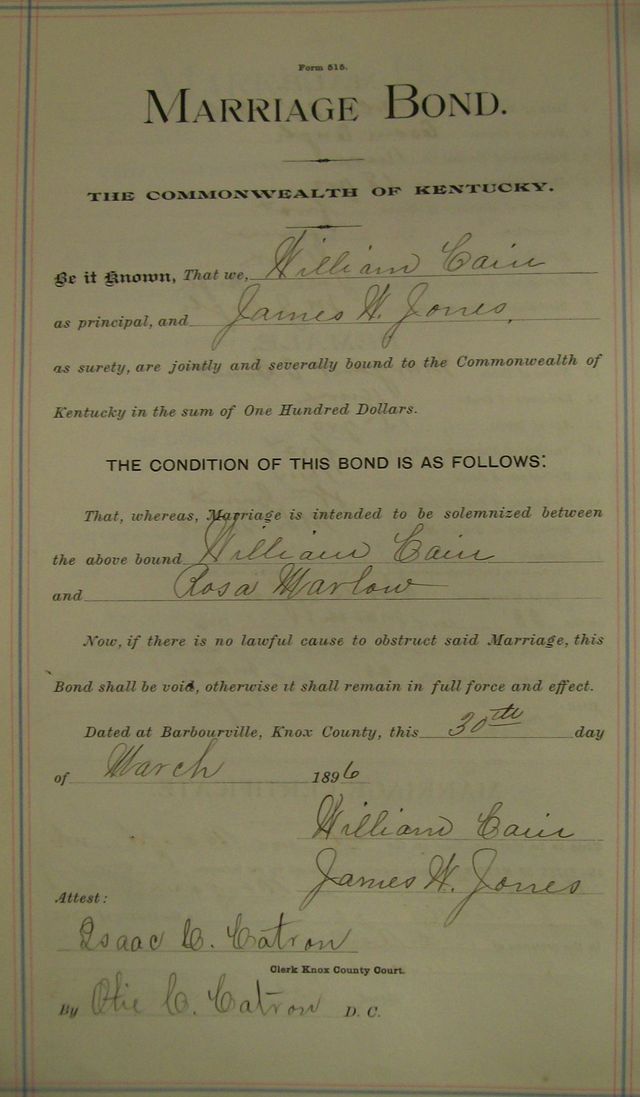 Form 515.
MARRIAGE BOND.
THE COMMONWEALTH OF KENTUCKY.
Be it Known, That we, William Cain
as principal, and James W. Jones,
as surety, are jointly and severally bound to the Commonwealth of
Kentucky in the sum of One Hundred Dollars.
THE CONDITION OF THIS BOND IS AS FOLLOWS:
That, whereas, Marriage is intended to be solemnized between
the above bound William Cain
and Rosa Marlow
Now, if there is no lawful cause to obstruct said Marriage, this
Bond shall be void, otherwise it shall remain in full force and effect.
Dated at Barbourville, Knox County, this 30th day
of March 1896
William Cain
James W. Jones
Attest:
Isaac C. Catron
Clerk Knox County Court.
By Otie C. Catron D. C.